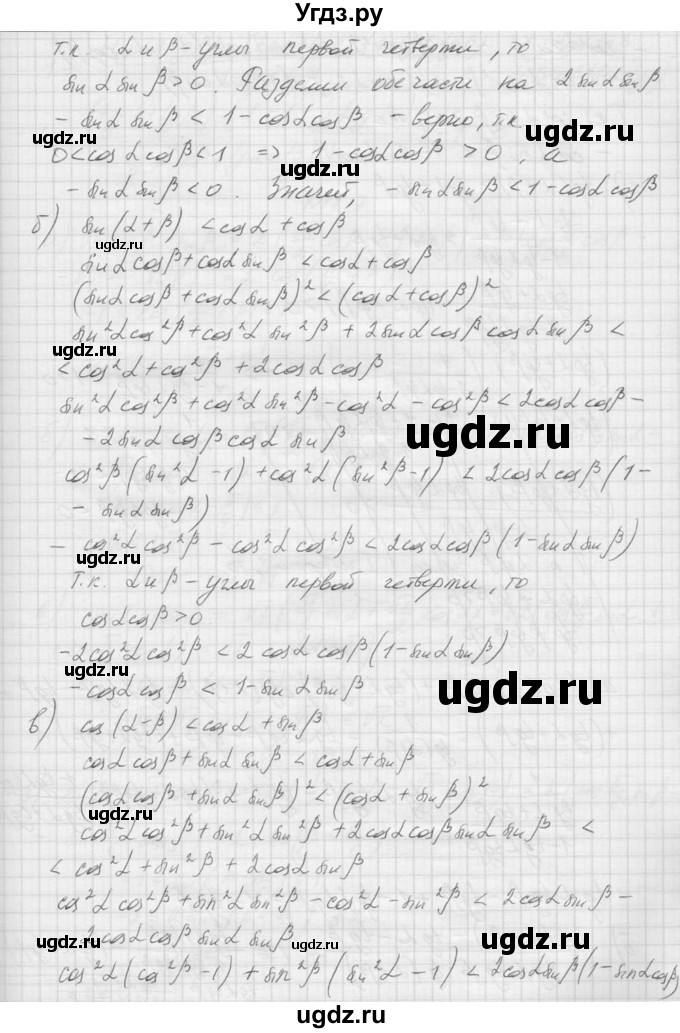 Угдз.ру
т.к. α и β - углы первой четверти, то
sinα sinβ > 0. Разделим обе части на 2sinα sinβ
- sinα sinβ < 1 - cosα cosβ - верно, т.к.
0 < cosα cosβ < 1 => 1 - cosα cosβ > 0, а
- sinα sinβ < 0. Значит, - sinα sinβ < 1 - cosα cosβ
б) sin(α+β) < cosα + cosβ
sinα cosβ + cosα sinβ < cosα + cosβ
(sinα cosβ + cosα sinβ)² < (cosα + cosβ)²
sin²α cos²β + cos²α sin²β + 2sinα cosβ cosα sinβ <
< cos²α + cos²β + 2cosα cosβ
sin²α cos²β + cos²α sin²β - cos²α - cos²β < 2cosα cosβ -
- 2sinα cosβ cosα sinβ
cos²β(sin²α - 1) + cos²α(sin²β - 1) < 2cosα cosβ(1 -
- sinα sinβ)
- cos²α cos²β - cos²α cos²β < 2cosα cosβ(1 - sinα sinβ)
Т.к. α и β - углы первой четверти, то
cosα cosβ > 0
-2cos²α cos²β < 2cosα cosβ(1 - sinα sinβ)
- cosα cosβ < 1 - sinα sinβ
в) cos(α-β) < cosα + sinβ
cosα cosβ + sinα sinβ < cosα + sinβ
(cosα cosβ + sinα sinβ)² < (cosα + sinβ)²
cos²α cos²β + sin²α sin²β + 2cosα cosβ sinα sinβ <
< cos²α + sin²β + 2cosα sinβ
cos²α cos²β + sin²α sin²β - cos²α - sin²β < 2cosα sinβ -
- 2cosα cosβ sinα sinβ
cos²α(cos²β - 1) + sin²β(sin²α - 1) < 2cosα sinβ(1 - sinα cosβ)
ugdz.ru
ugdz.ru
ugdz.ru
ugdz.ru
ugdz.ru
ugdz.ru
ugdz.ru
ugdz.ru
ugdz.ru
ugdz.ru
ugdz.ru
ugdz.ru
ugdz.ru